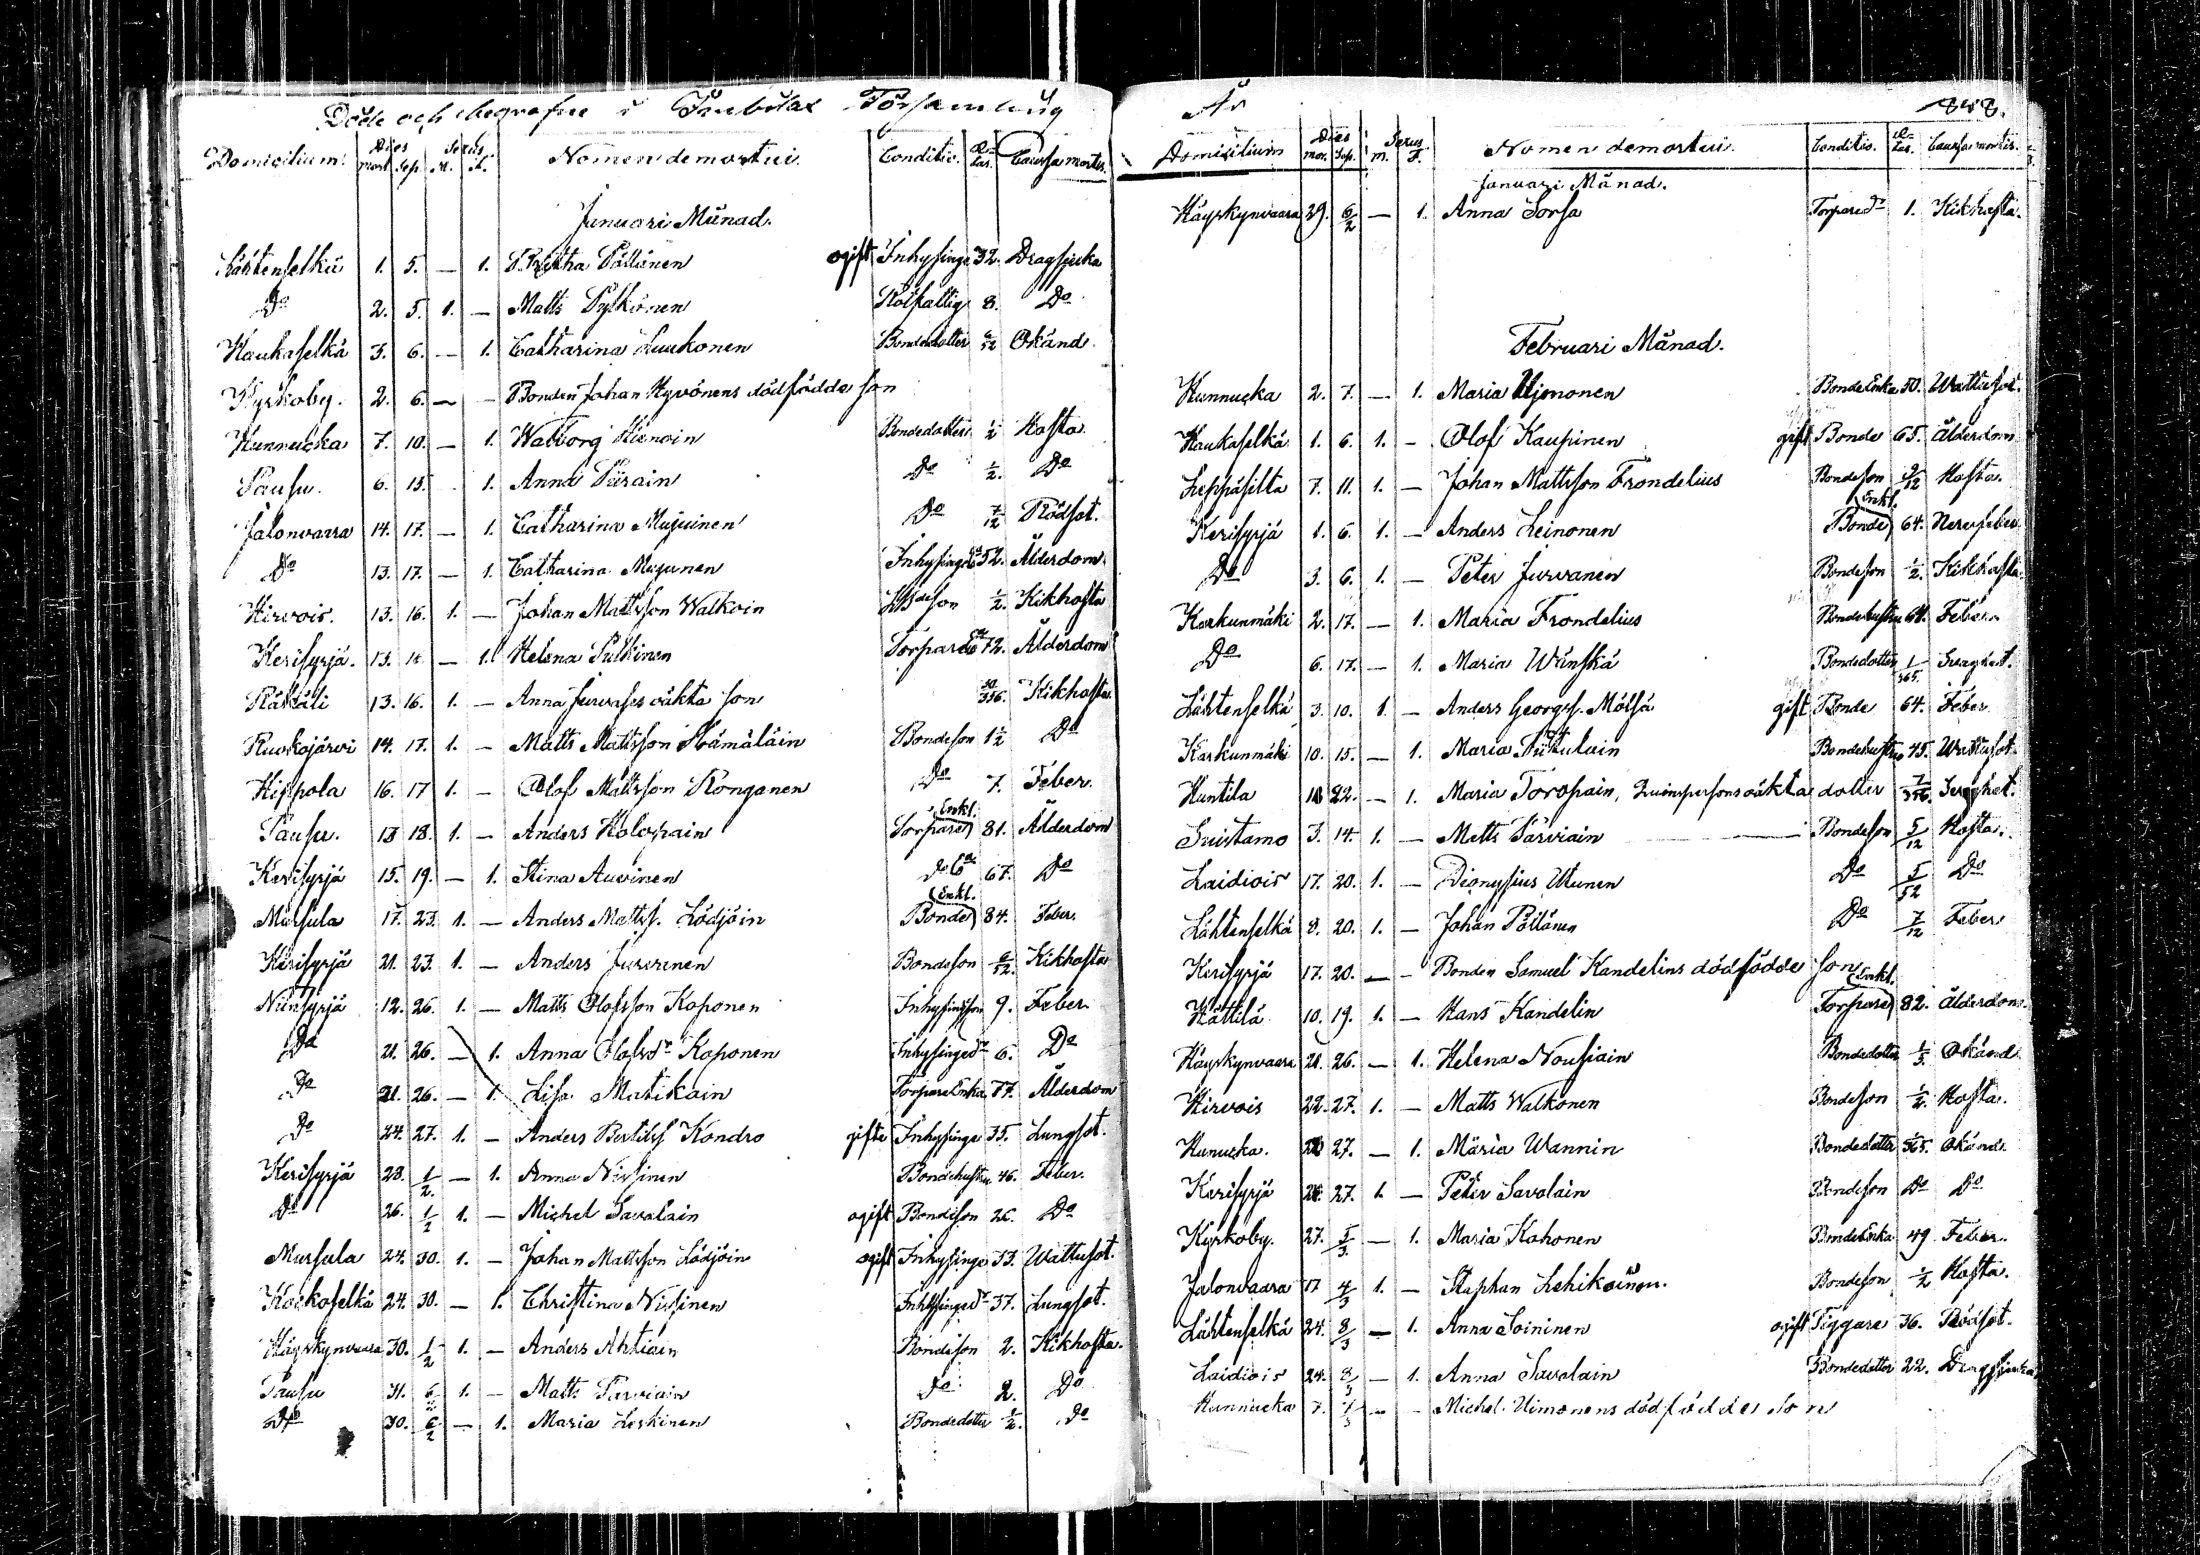 Döde och begrafne i Församling
Domicilium. Dies mort. Sep. Sexus M. F. Nomen demortui. Conditio. Ætas. Caussa mortis.
Januari Månad.
Lähtenselkä 1. 5. — 1. Pöllönen ogift Inhysinge 32. Dragsjuka
Do 2. 5. 1. — Matts Pylkönen Rotfattig 8. Do
Haukaselkä 3. 6. — 1. Catharina Luukonen Bondedotter Okänd.
Kyrkoby. 2. 6. — — Bonden Johan Hyvönens dödfödde son
Hunnucka 7. 10. — 1. Walborg Bondedotter 1/2 Hosta
Pausu. 6. 15. 1. Anna Piirain Do 1/2. Do
Jalonvaara 14. 17. — 1. Catharina Mujuinen Do 7/12 Rödsot.
Do 13. 17. — 1. Catharina Mujunen Inhysinge 52. Ålderdom.
Hirvois. 13. 16. 1. — Johan Mattsson Walkoin Bdeson 1/2. Kikhosta
Kerisyrjä. 13. — 1. Helena Pulkinen Torpare 72. Ålderdom
Räkäli 13. 16. 1. — Anna Jurvases oäkta son Kikhosta
Ruokojärvi 14. 17. 1. — Matts Mattsson Hämäläin Bondeson 1 1/2 Do
Hippola 16. 17 1. — Olof Mattsson Konganen Do 7. Feber.
Pausu. 13 18. 1. — Anders Holopain Torpare Enkl. 81. Ålderdom
Kerisyrjä 15. 19. — 1. Stina Auvinen Do 67. Do
Mursula 17. 23. 1. — Anders Mattss. Lödjöin Bonde Enkl. 84. Feber.
Kerisyrjä 21. 23. 1. — Anders Jurvanen Bondeson Kikhosta
Niinisyrjä 12. 26. 1. — Matts Olofsson Koponen Inhysingson 9. Feber.
Do 21. 26. — 1. Anna Olofsdr Koponen Inhysingedr 6. Do
Do 21. 26. — 1. Lisa Matikain Torpare Enka 77. Ålderdom
Do 24. 27. 1. — Anders Bertilss Kondro gifte Inhysinge 35. Lungsot.
Kerisyrjä 28. 1/2. — 1. Anna Nissinen Bondehustru 46. Feber.
Do 26. 1/2 1. — Michel Savolain ogift Bondeson 26. Do
Mursula 24. 30. 1. — Johan Mattsson Lödjöin ogift Inhysinge 33. Wattusot.
Koskoselkä 24. 30. — 1. Christina Nissinen Inhysingedr 37. Lungsot.
Häyskynvaara 30. 1/2 1. — Anders Ahtiain Bondeson 2. Kikhosta.
Pausu 31. 6/2 1. — Matts Parviain Do 2. Do
Do 30. 6/2 — 1. Maria Leskinen Bondedotter 1/2. Do
År 1848.
Domicilium Dies mor. Sep. Sexus m. F. Nomen demortui. Conditio. Ætas. Caussa mortis.
Januari Månad.
Häyskynvaara 29. 6/2 — 1. Anna Sorsa Torparedr 1. Kikhosta.
Februari Månad.
Hunnucka 2. 7. — 1. Maria Uimonen Bonde Enka 50. Wattusot.
Haukaselkä 1. 6. 1. — Olof Kaupinen gift Bonde 65. Ålderdom
Leppäsilta 7. 11. 1. — Johan Mattsson Frondelius Bondeson 9/12 Hosta.
Kerisyrjä 1. 6. 1. — Anders Leinonen Bonde Enkl. 64. Nervfeber
Do 3. 6. 1. — Peter Jurvanen Bondeson 1/2. Kikhosta
Karkunmäki 2. 17. — 1. Maria Frondelius Bondehustru 64. Feber.
Do 6. 17. — 1. Maria Wänskä Bondedotter 1/365. Svaghet.
Lähtenselkä 3. 10. 1. — Anders Georgss. Mölsä gift Bonde 64. Feber
Karkunmäki 10. 15. — 1. Maria Bondehustru 45. Wattusot.
Huntila 22. — 1. Maria Toropain, oäkta dotter Svaghet.
Suistamo 3. 14. 1. — Matts Parviain Bondeson 5/12 Hosta.
Laidiois 17. 20. 1. — Dionysius Utunen Do 5/52 Do
Lähtenselkä 8. 20. 1. — Johan Pöllänen Do 7/12 Feber
Kerisyrjä 17. 20. — — Bonden Samuel Kandelins dödfödde son
Hättilä 10. 19. 1. — Hans Kandelin Torpare Enkl. 82. Ålderdom.
Häyskynvaara 21. 26. — 1. Helena Nousiain Bondedotter 1/3. Okänd
Hirvois 22. 27. 1. — Matts Walkonen Bondeson 1/2. Hosta.
Hunucka. 27. — 1. Maria Wannin Bondedotter Okänd.
Kerisyrjä 27. 1. — Peter Savolain Bondeson Do Do
Kyrkoby. 27. 5/3. — 1. Maria Kohonen Bonde Enka 49 Feber.
Jalonvaara 17 4/3 1. — Staphan Lehikoinen. Bondeson 1/2 Hosta.
Lähtenselkä 24. 8/3 — 1. Anna Soininen ogift Tiggare 36. Rödsot.
Laidiois 24. 8/3 — 1. Anna Savolain Bondedotter 22. Dragsjuka
Hunnucka 7. — — Michel Uimonens dödfödde Son